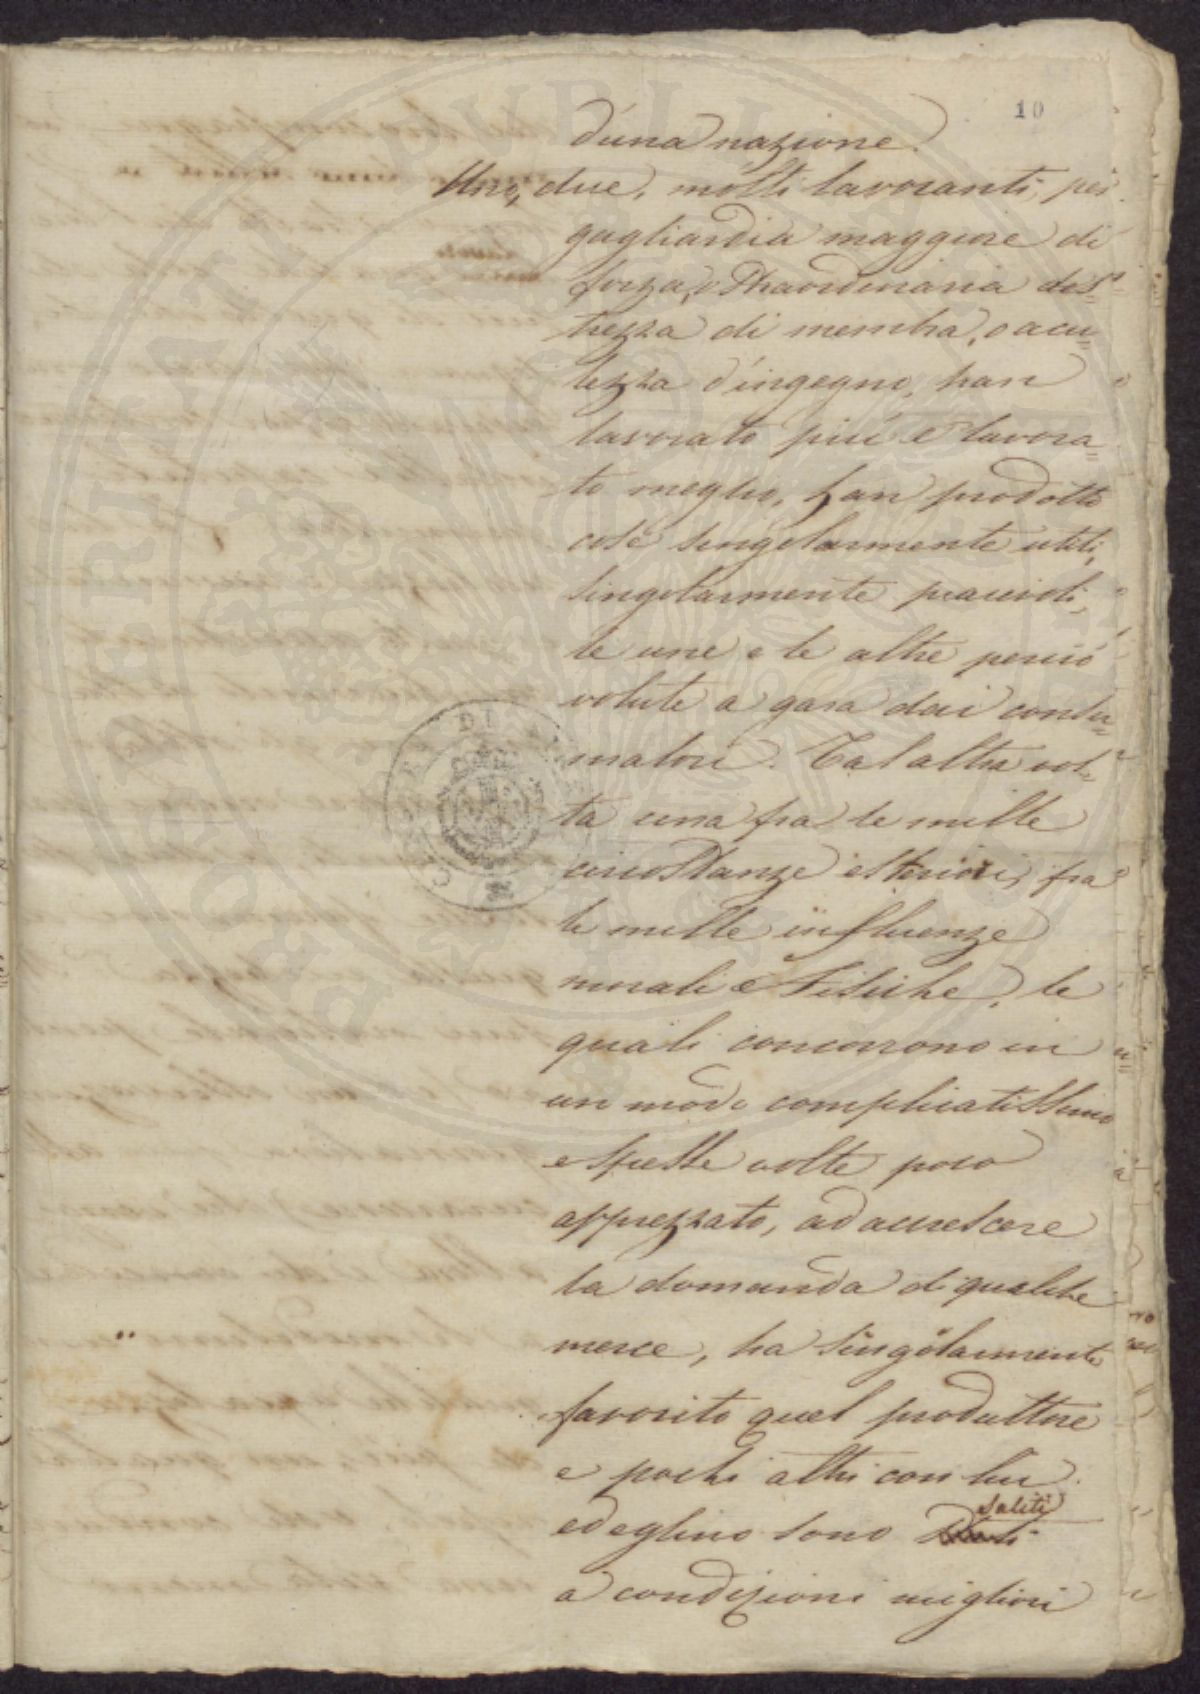 10
d'una nazione.
Uno, due, molti lavoranti, per
gagliardia maggiore di
forza, o straordinaria des=
trezza di membra, o acu=
tezza d'ingegno, han
lavorato piú e lavora=
to meglio, han prodotto
cose singolarmente utili,
singolarmente piacevoli,
le une e le altre perciò
volute a gara dai consu=
matori. Tal altra vol=
ta una fra le mille
circostanze esteriori, fra
le mille influenze
morali e fisiche, le
quali concorrono in
un modo complicatissimo
e spesse volte poco
apprezzato, ad accrescere
la domanda di qualche
merce, ha singolarmente
favorito quel produttore
e pochi altri con lui
saliti
ed eglino sono
a condizioni migliori